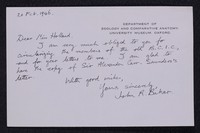 20 Feb. 1962.
DEPARTMENT OF
ZOOLOGY AND COMPARATIVE ANATOMY
UNIVERSITY MUSEUM OXFORD
Dear Miss
I am very much obliged to you for
the members of the old
and for your letters to me. I am glad to
have the copy of Sir Alexander Carr-Saunders's
letter.
With good wishes,
Yours sincerely,
John R. Baker